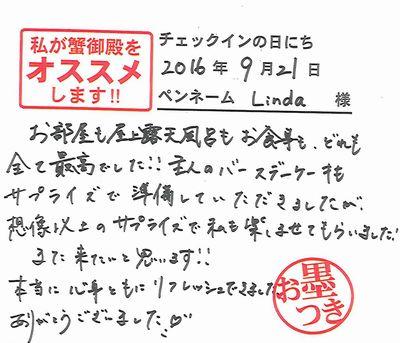 私が蟹御殿を
オススメ
します!!
チェックインの日にち
2016年 9月21日
ペンネーム Linda 様
お部屋も屋上露天風呂もお食事も、どれも
全て最高でした!! 主人のバースデーケーキも
サプライズで準備していただきましたが、
想像以上のサプライズで私も楽しませてもらいました!
また来たいと思います!!
本当に心身ともにリフレッシュできました
ありがとうございました♡
お墨つき